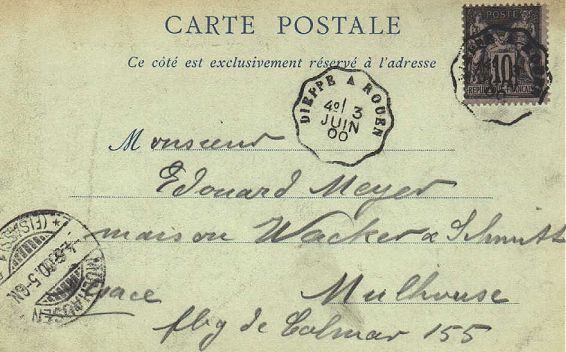 CARTE POSTALE
Ce côté est exclusivement réservé à l'adresse
POSTE
10
REPUBLIQUE FRANÇAISE
DIEPPE A ROUEN
3
JUIN
00
Monsieur
Edouard Meyer
maison Wacker & Schmitt
Mulhouse
Alsace
fbg de Colmar 155
MÜLHAUSEN
(ELSASS) 1